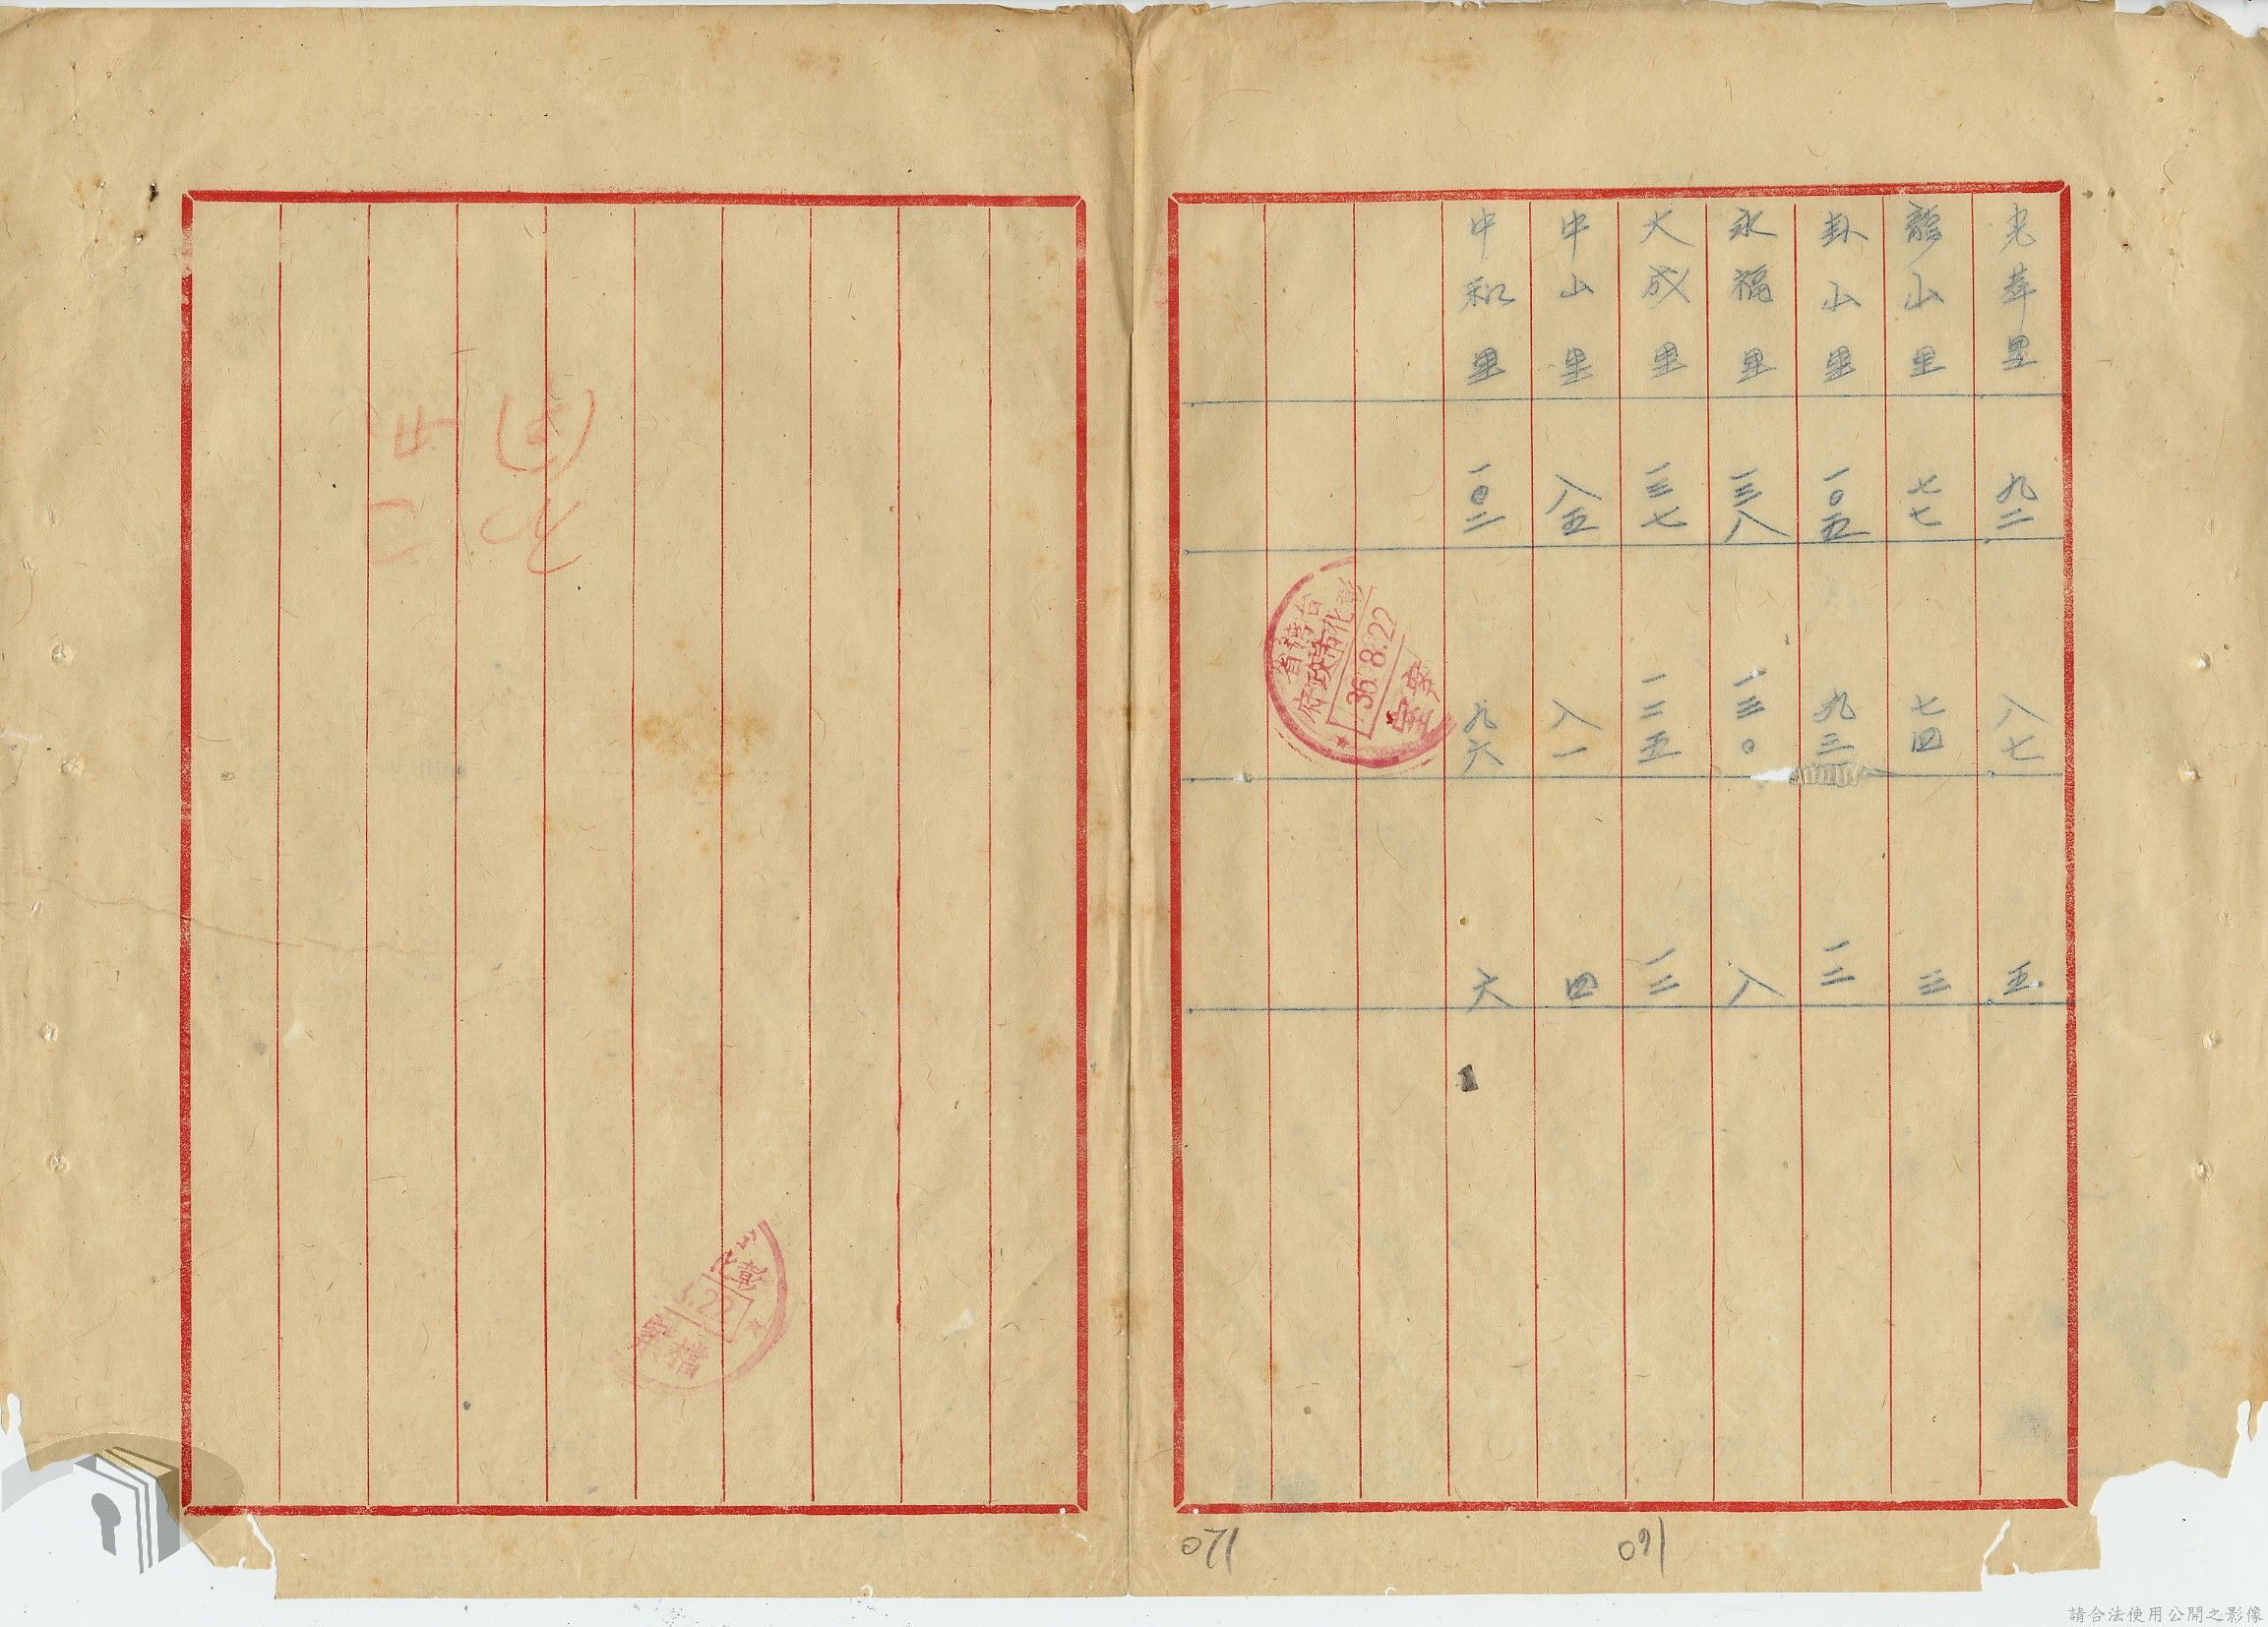 光華里 九二 八七 五
龍山里 七七 七四 三
卦山里 一〇五 九三 一二
永福里 一三八 一三〇 八
大成里 一三七 一二五 一二
中山里 八五 八一 四
中和里 一〇二 九六 六
台灣省
彰化市政府
36.8.22
室
091
071
彰化
.22
檔案
請合法使用公開之影像